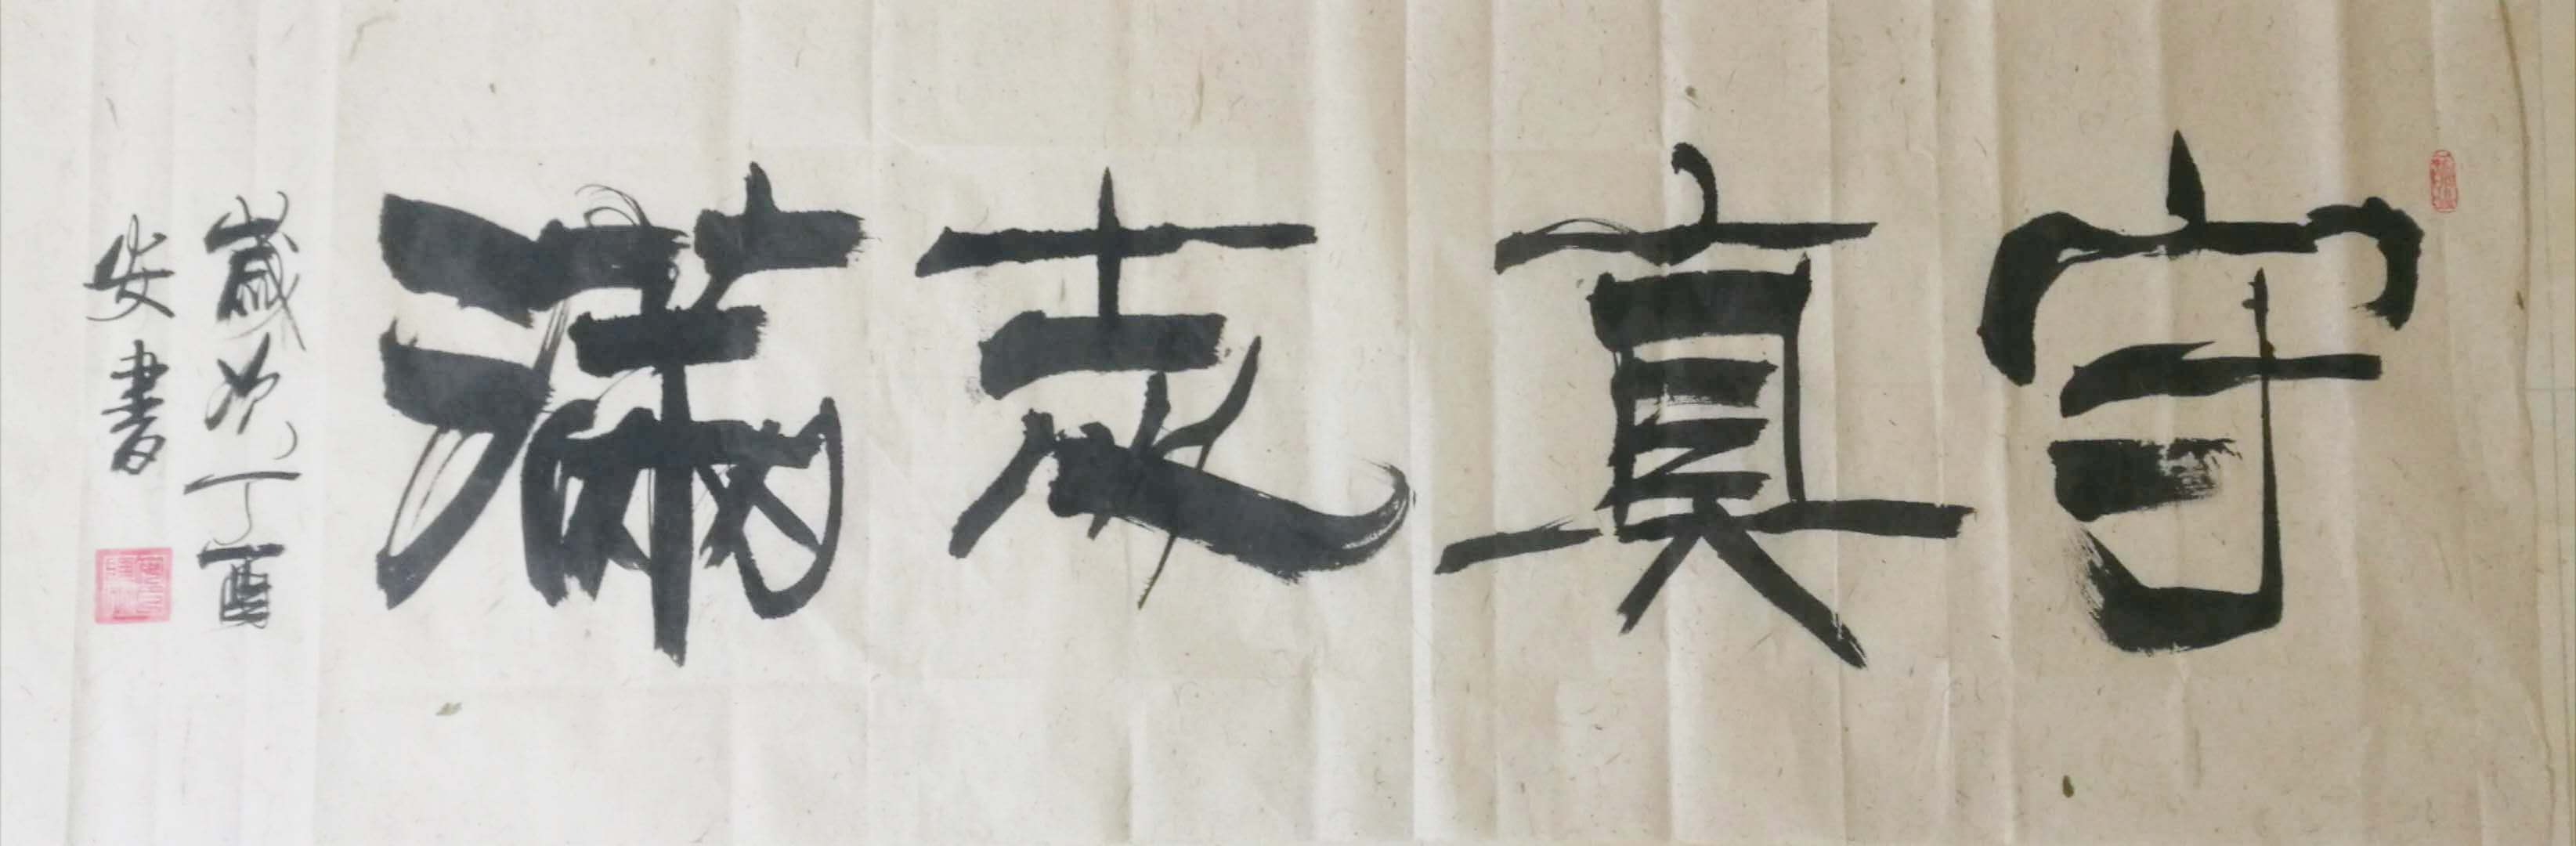 守真志满
歲次丁酉
安書